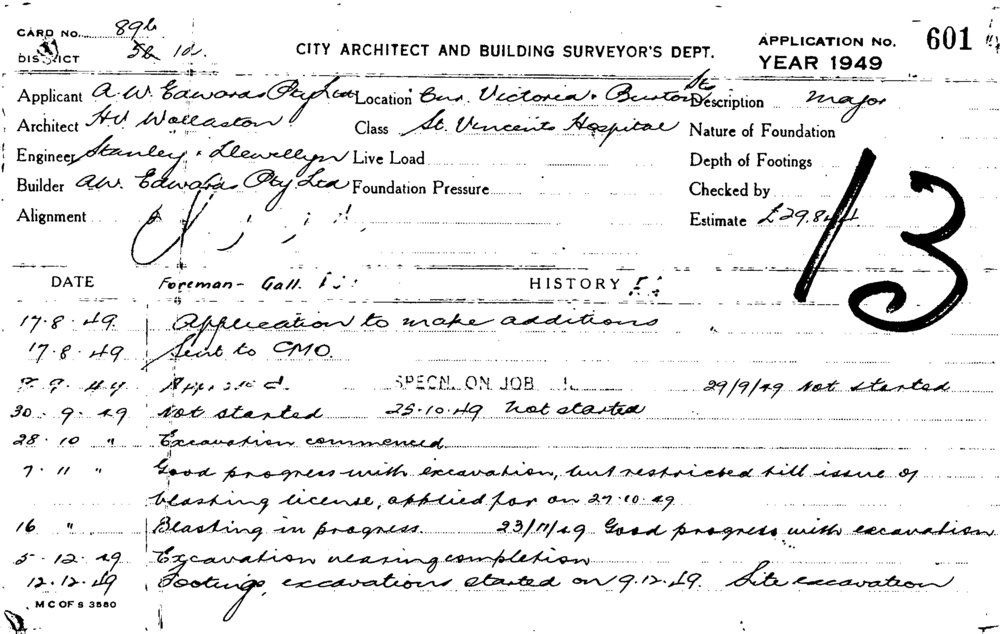 CARD No. 89b
DISTRICT 5b 1d.
CITY ARCHITECT AND BUILDING SURVEYOR'S DEPT.
APPLICATION No. 601
YEAR 1949
Applicant A.W. Edwards Pty Ltd Location Cnr. Victoria & Burton Sts Description Major
Architect H.V. Wollaston Class St. Vincents Hospital Nature of Foundation
Engineer Stanley & Llewellyn Live Load Depth of Footings
Builder A.W. Edwards Pty Ltd Foundation Pressure Checked by
Alignment Estimate £29,844
13
DATE Foreman - Gall. HISTORY
17.8.49. Application to make additions
17.8.49 Sent to CMO.
SPECN. ON JOB 29/9/49 Not started
30.9.49 Not started 25.10.49 Not started
28.10 " Excavation commenced
7.11 " Good progress with excavation, but restricted till issue of
blasting license, applied for on 27.10.49
16 " Blasting in progress. 23/11/49 Good progress with excavation
5.12.49 Excavation nearing completion
12.12.49 Footings excavations started on 9.12.49. Site excavation
M C OF S 3580